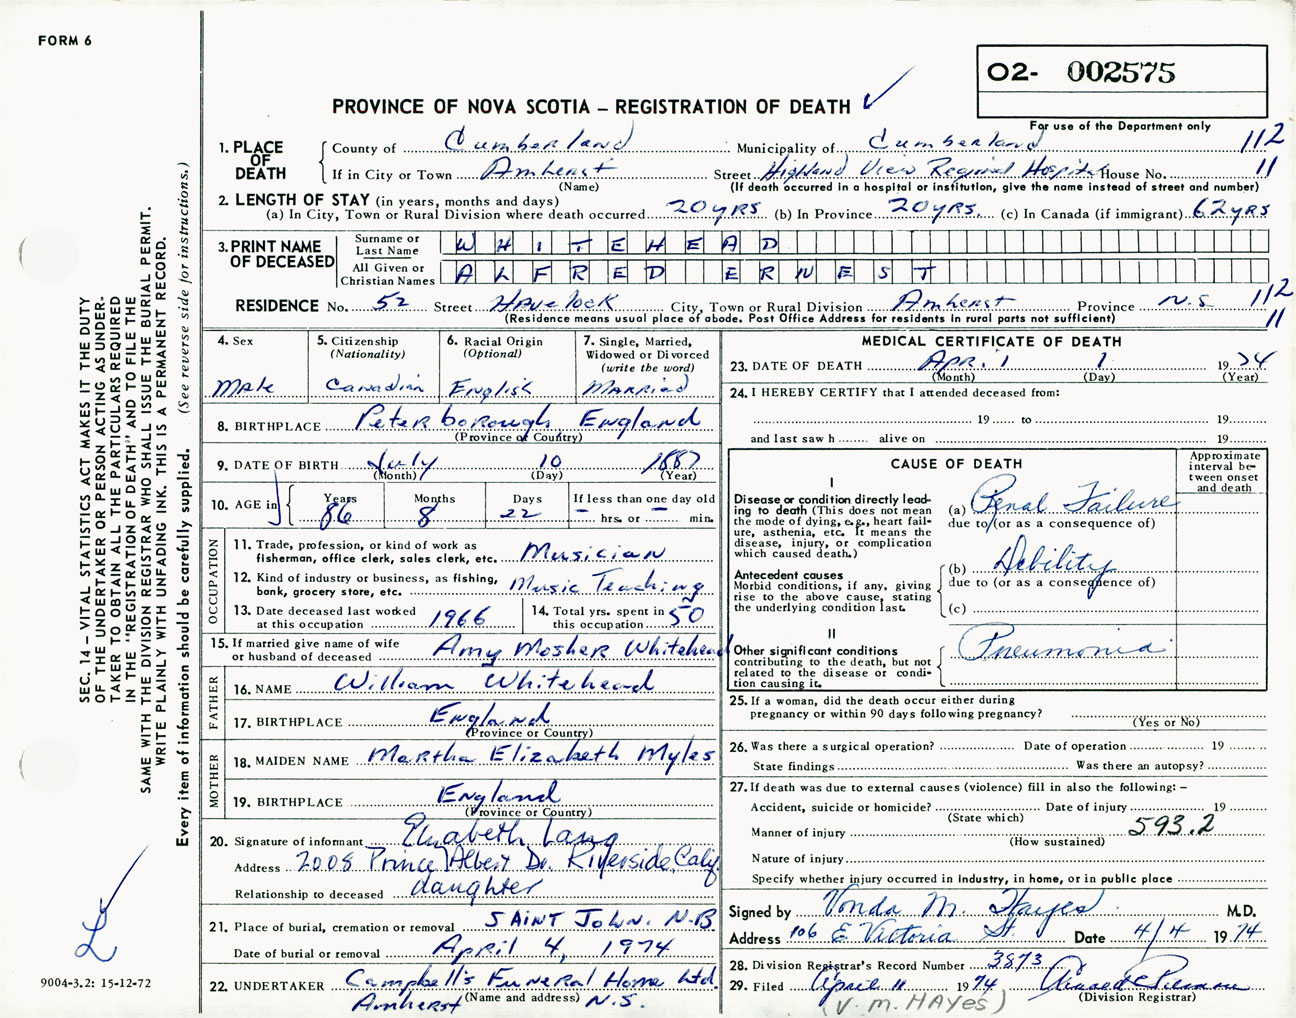 FORM 6
O2- 002575
PROVINCE OF NOVA SCOTIA – REGISTRATION OF DEATH ✓
For use of the Department only
1. PLACE OF DEATH County of Cumberland Municipality of Cumberland 112
If in City or Town Amherst Street Highland View Regional Hospital House No. 11
(Name) (If death occurred in a hospital or institution, give the name instead of street and number)
2. LENGTH OF STAY (in years, months and days)
(a) In City, Town or Rural Division where death occurred 20 yrs (b) In Province 20 yrs. (c) In Canada (if immigrant) 62 yrs
3. PRINT NAME OF DECEASED
Surname or Last Name WHITEHEAD
All Given or Christian Names ALFRED ERNEST
RESIDENCE No. 52 Street Havelock City, Town or Rural Division Amherst Province N.S 112
(Residence means usual place of abode. Post Office Address for residents in rural parts not sufficient) 11
4. Sex Male
5. Citizenship (Nationality) Canadian
6. Racial Origin (Optional) English
7. Single, Married, Widowed or Divorced (write the word) Married
8. BIRTHPLACE Peterborough, England
(Province or Country)
9. DATE OF BIRTH July 10 1887
(Month) (Day) (Year)
10. AGE in Years 86 Months 8 Days 22 If less than one day old – hrs. or – min.
OCCUPATION
11. Trade, profession, or kind of work as fisherman, office clerk, sales clerk, etc. Musician
12. Kind of industry or business, as fishing, bank, grocery store, etc. Music Teaching
13. Date deceased last worked at this occupation 1966
14. Total yrs. spent in this occupation 50
15. If married give name of wife or husband of deceased Amy Mosher Whitehead
FATHER
16. NAME William Whitehead
17. BIRTHPLACE England
(Province or Country)
MOTHER
18. MAIDEN NAME Martha Elizabeth Myles
19. BIRTHPLACE England
(Province or Country)
20. Signature of informant Elizabeth Lang
Address 2008 Prince Albert Dr. Riverside, Calif.
Relationship to deceased daughter
21. Place of burial, cremation or removal SAINT JOHN. N.B.
Date of burial or removal April 4, 1974
22. UNDERTAKER Campbell's Funeral Home Ltd.
(Name and address) Amherst N.S.
MEDICAL CERTIFICATE OF DEATH
23. DATE OF DEATH April 1 1974
(Month) (Day) (Year)
24. I HEREBY CERTIFY that I attended deceased from:
19 to 19
and last saw h alive on 19
CAUSE OF DEATH
Approximate interval between onset and death
I
Disease or condition directly leading to death (This does not mean the mode of dying, e.g., heart failure, asthenia, etc. It means the disease, injury, or complication which caused death.)
(a) Renal Failure
due to (or as a consequence of)
Antecedent causes
Morbid conditions, if any, giving rise to the above cause, stating the underlying condition last.
(b) Debility
due to (or as a consequence of)
(c)
II
Other significant conditions contributing to the death, but not related to the disease or condition causing it.
Pneumonia
25. If a woman, did the death occur either during pregnancy or within 90 days following pregnancy?
(Yes or No)
26. Was there a surgical operation? Date of operation 19
State findings Was there an autopsy?
27. If death was due to external causes (violence) fill in also the following: –
Accident, suicide or homicide? Date of injury 19
(State which)
Manner of injury 593.2
(How sustained)
Nature of injury
Specify whether injury occurred in industry, in home, or in public place
Signed by Vonda M. Hayes M.D.
Address 106 E. Victoria St. Date 4/4 1974
28. Division Registrar's Record Number 3873
29. Filed April 11 1974
(Division Registrar)
(V. M. HAYES)
SEC. 14 – VITAL STATISTICS ACT MAKES IT THE DUTY
OF THE UNDERTAKER OR PERSON ACTING AS UNDER-
TAKER TO OBTAIN ALL THE PARTICULARS REQUIRED
IN THE "REGISTRATION OF DEATH" AND TO FILE THE
SAME WITH THE DIVISION REGISTRAR WHO SHALL ISSUE THE BURIAL PERMIT.
WRITE PLAINLY WITH UNFADING INK. THIS IS A PERMANENT RECORD.
Every item of information should be carefully supplied. (See reverse side for instructions.)
9004-3.2: 15-12-72